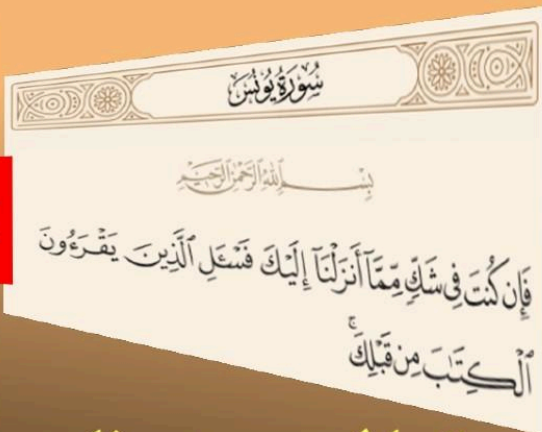 سُورَةُ يُونُسَ
بِسْمِ ٱللَّهِ ٱلرَّحْمَٰنِ ٱلرَّحِيمِ
فَإِن كُنتَ فِى شَكٍّ مِّمَّآ أَنزَلْنَآ إِلَيْكَ فَسْـَٔلِ ٱلَّذِينَ يَقْرَءُونَ
ٱلْكِتَـٰبَ مِن قَبْلِكَ ۚ